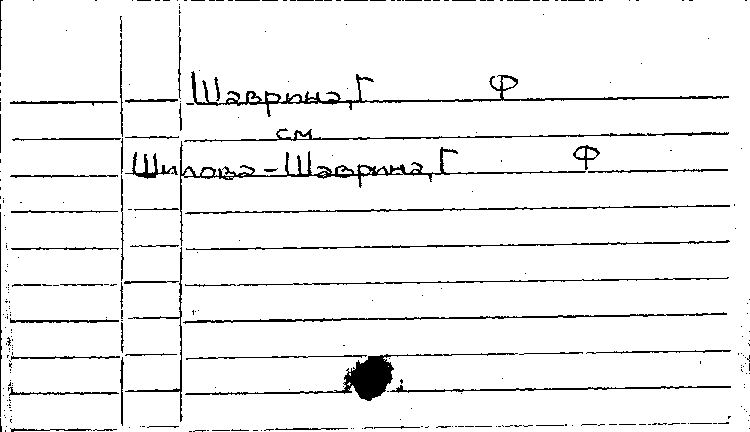 Шаврина, Г Ф
см
Шилова-Шаврина, Г Ф